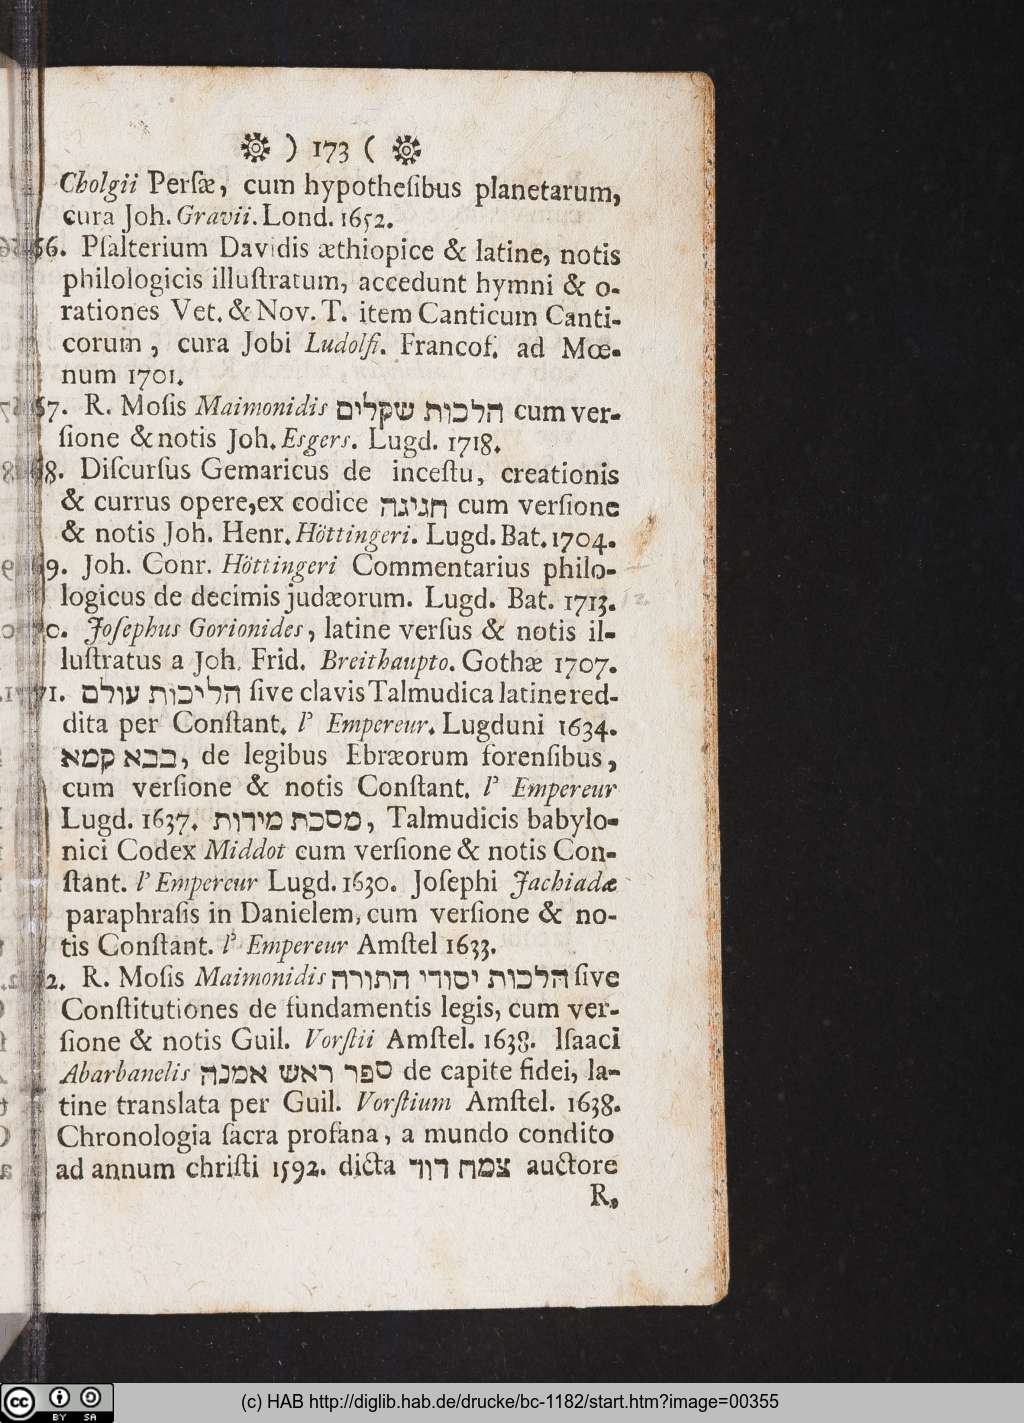 ) 173 (
Cholgii Perſæ, cum hypotheſibus planetarum,
cura Joh. Gravii. Lond. 1652.
66. Pſalterium Davidis æthiopice & latine, notis
philologicis illuſtratum, accedunt hymni & o-
rationes Vet. & Nov. T. item Canticum Canti-
corum, cura Jobi Ludolfi. Francof. ad Mœ-
num 1701.
67. R. Moſis Maimonidis הלכות שקלים cum ver-
ſione & notis Joh. Esgers. Lugd. 1718.
68. Diſcurſus Gemaricus de inceſtu, creationis
& currus opere, ex codice חגיגה cum verſione
& notis Joh. Henr. Höttingeri. Lugd. Bat. 1704.
69. Joh. Conr. Höttingeri Commentarius philo-
logicus de decimis judæorum. Lugd. Bat. 1713.
70. Joſephus Gorionides, latine verſus & notis il-
luſtratus a Joh. Frid. Breithaupto. Gothæ 1707.
71. הליכות עולם ſive clavis Talmudica latine red-
dita per Conſtant. l' Empereur. Lugduni 1634.
בבא קמא, de legibus Ebræorum forenſibus,
cum verſione & notis Conſtant. l' Empereur
Lugd. 1637. מסכת מידות, Talmudicis babylo-
nici Codex Middot cum verſione & notis Con-
ſtant. l' Empereur Lugd. 1630. Joſephi Jachiadæ
paraphraſis in Danielem, cum verſione & no-
tis Conſtant. l' Empereur Amſtel 1633.
72. R. Moſis Maimonidis הלכות יסודי התורה ſive
Conſtitutiones de fundamentis legis, cum ver-
ſione & notis Guil. Vorſtii Amſtel. 1638. Iſaaci
Abarbanelis ספר ראש אמנה de capite fidei, la-
tine translata per Guil. Vorſtium Amſtel. 1638.
Chronologia ſacra profana, a mundo condito
ad annum chriſti 1592. dicta צמח דוד auctore
R.
(c) HAB http://diglib.hab.de/drucke/bc-1182/start.htm?image=00355
cc BY SA